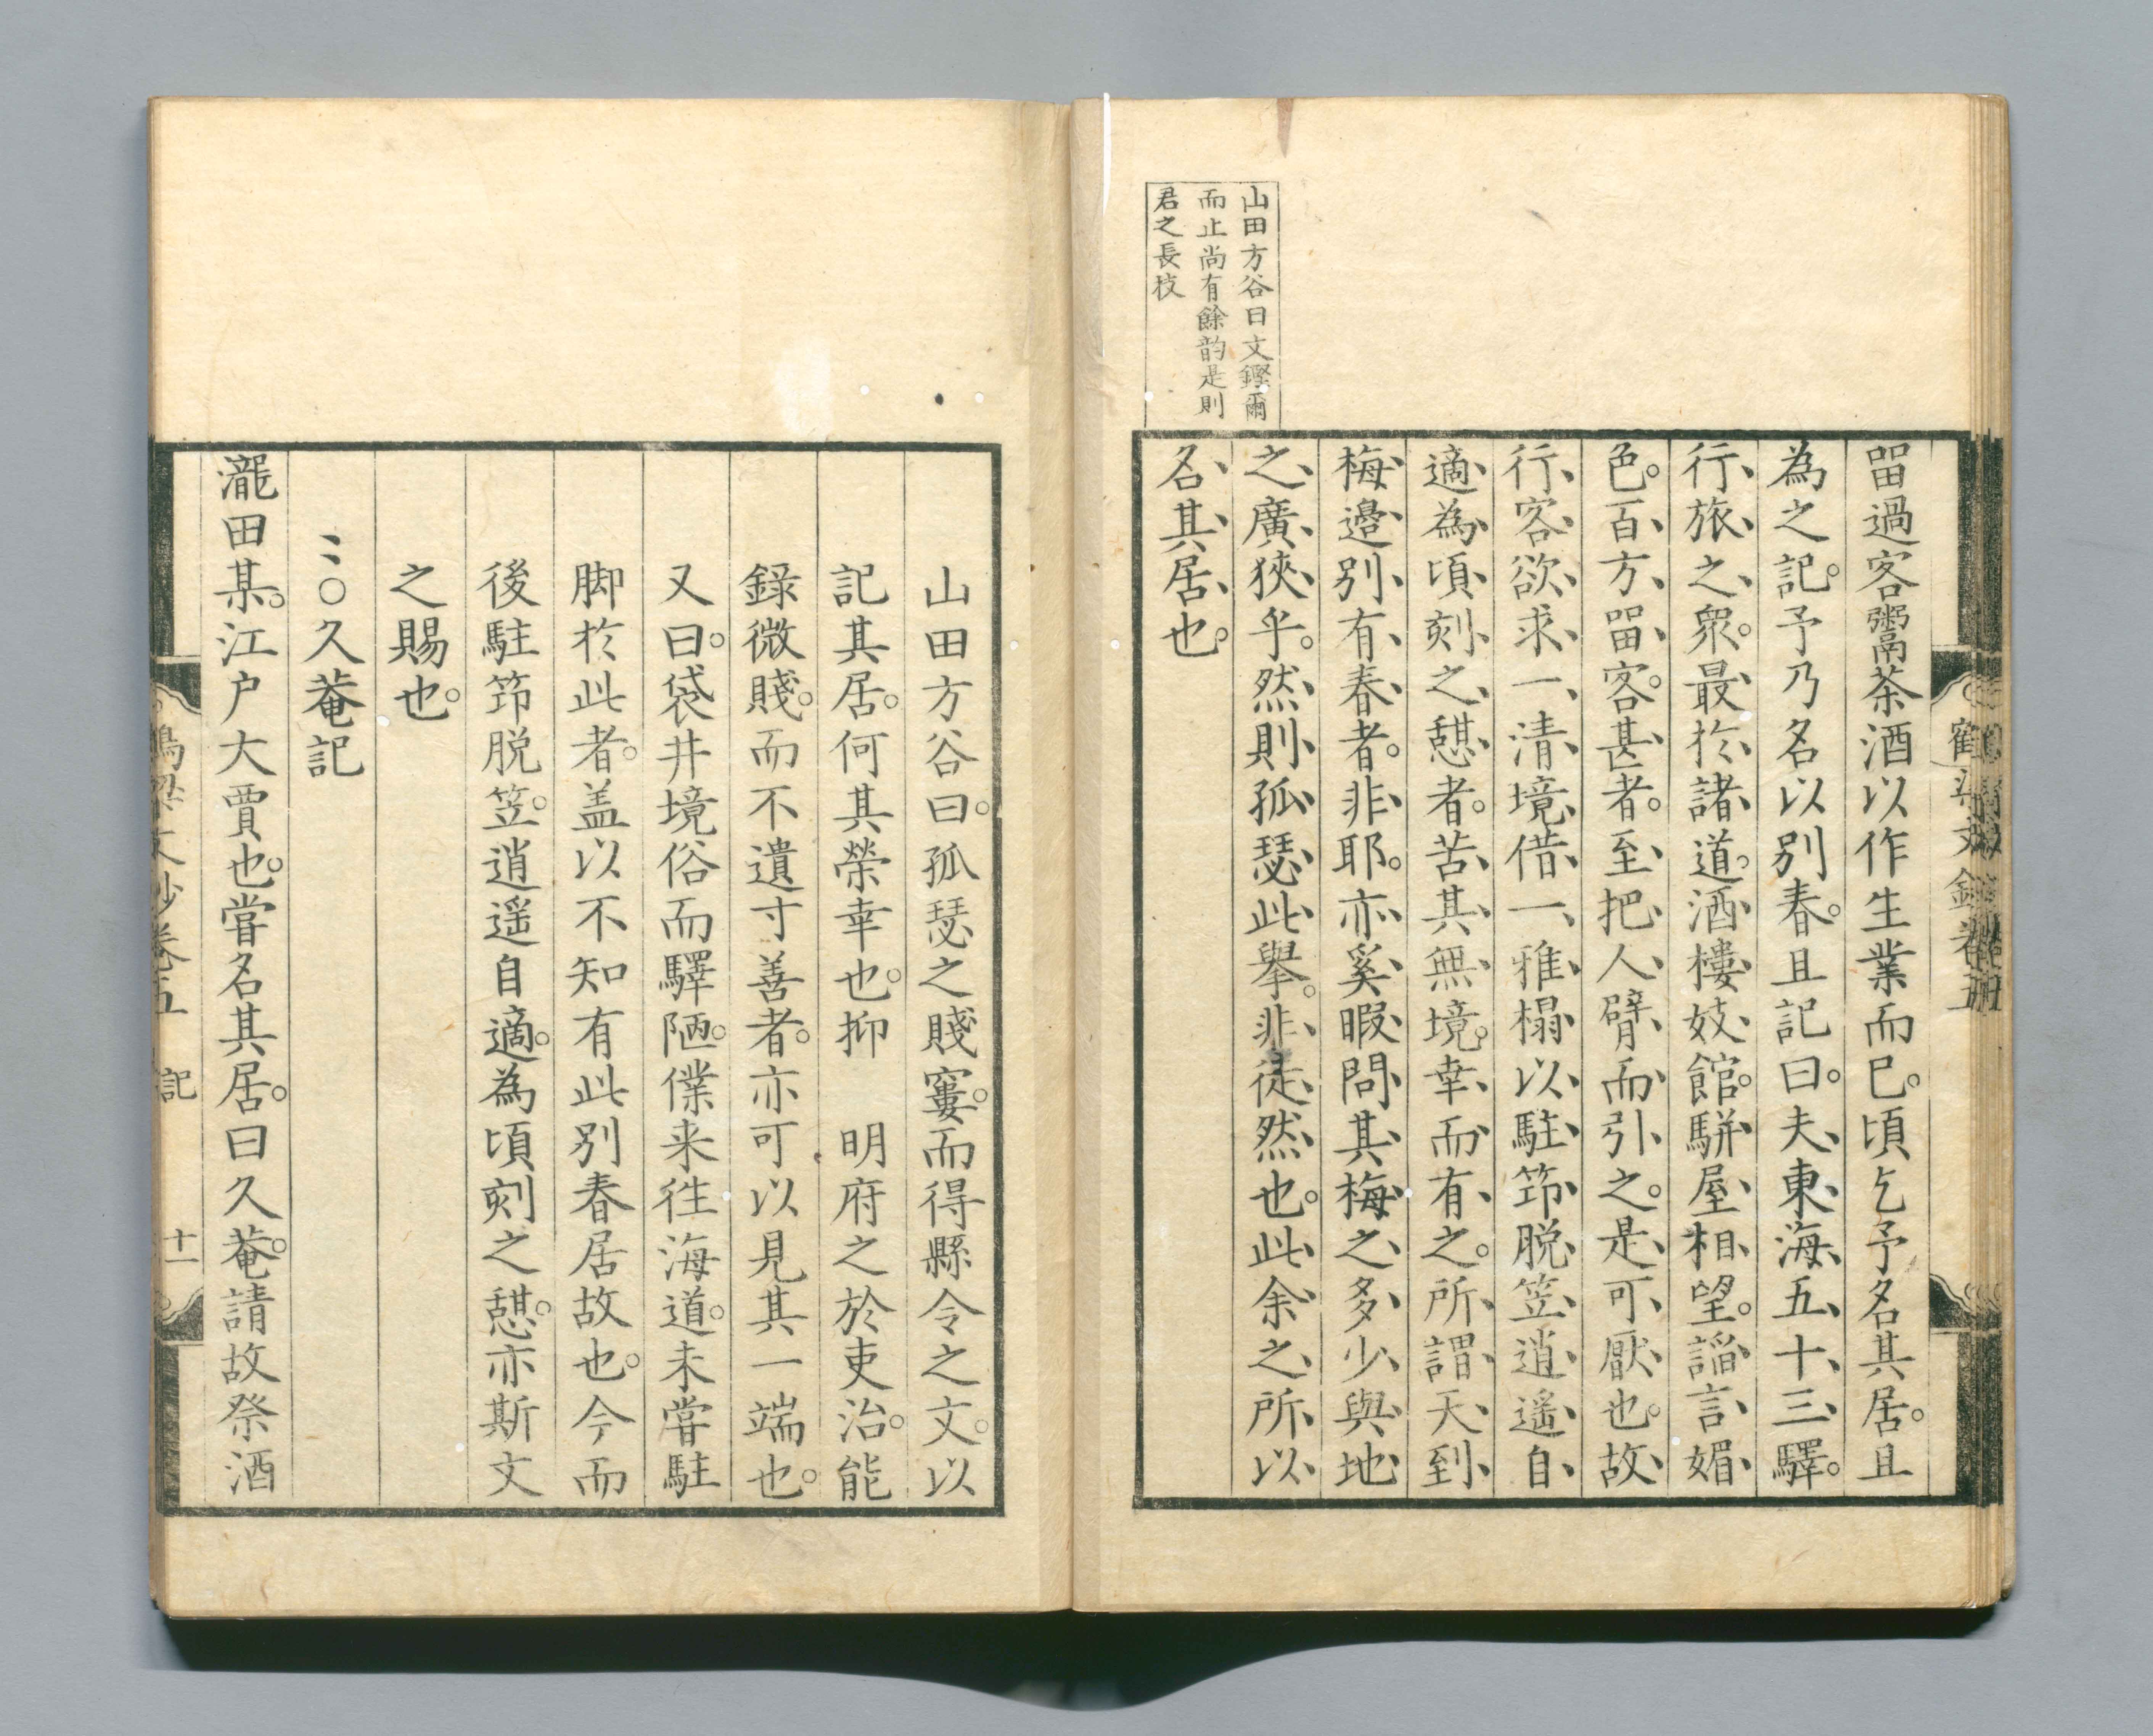 山田方谷曰文鏗爾
而止尚有餘韵是則
君之長技
畱過客鬻茶酒以作生業而已。頃乞予名其居。且
為之記。予乃名以別春。且記曰。夫東海五十三驛。
行旅之衆。最於諸道。酒樓妓館。駢屋相望。謟言媚
色。百方畱客。甚者。至把人臂而引之。是可厭也。故
行客欲求一清境借一雅榻以駐節脱笠逍遙自
適為頃刻之憇者。苦其無境。幸而有之。所謂天到
梅邉別有春者。非耶。亦奚暇問其梅之多少與地
之廣狹乎。然則孤瑟此舉。非徒然也。此余之所以
名其居也。
山田方谷曰。孤瑟之賤窶。而得縣令之文。以
記其居。何其榮幸也。抑　明府之於吏治。能
錄微賤。而不遺寸善者。亦可以見其一端也。
又曰。袋井境俗而驛陋。僕来往海道。未嘗駐
脚於此者。盖以不知有此別春居故也。今而
後駐節脱笠。逍遥自適。為頃刻之憇。亦斯文
之賜也。
〇久菴記
瀧田某。江户大賈也。嘗名其居。曰久菴。請故祭酒
文鈔卷五　記　十一